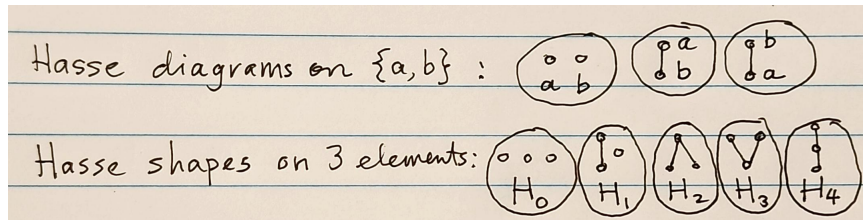 Hasse diagrams on {a,b} : a b a b b a
Hasse shapes on 3 elements: H₀ H₁ H₂ H₃ H₄